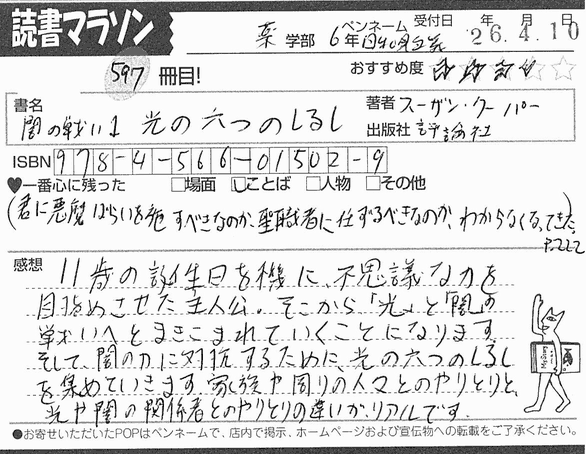 読書マラソン
薬 学部 6年 ペンネーム 受付日 年 月 日
26.4.10
597 冊目! おすすめ度
書名 著者 スーザン・クーパー
闇の戦い1 光の六つのしるし 出版社 評論社
ISBN 978-4-566-01502-9
♥一番心に残った □場面 ☑ことば □人物 □その他
(君に悪魔ばらいを施すべきなのか、聖職者に任ずるべきなのか、わからなくなってきた。
P.222
感想 11歳の誕生日を機に、不思議な力を
目覚めさせた主人公。そこから「光」と「闇」の
戦いへとまきこまれていくことになります。
そして、闇の力に対抗するために、光の六つのしるし
を集めていきます。家族や周りの人々とのやりとりと、
光や闇の関係者とのやりとりの違いが、リアルです。
●お寄せいただいたPOPはペンネームで、店内で掲示、ホームページおよび宣伝物への転載をご了承ください。